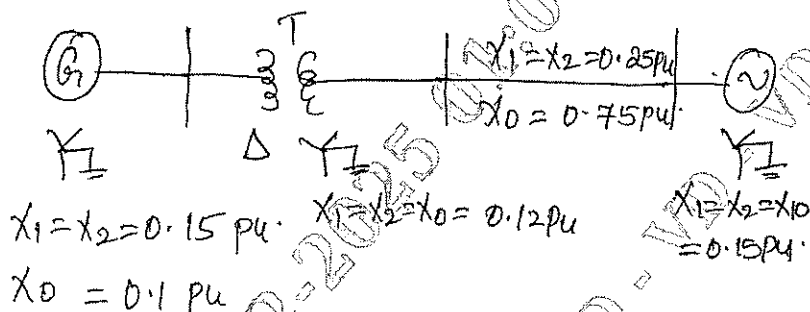 T
G
X1=X2=0.25pu
X0 = 0.75pu
Δ
X1=X2=0.15 pu.
X0 = 0.1 pu
X1=X2=X0= 0.12pu
X1=X2=X10
=0.15pu.